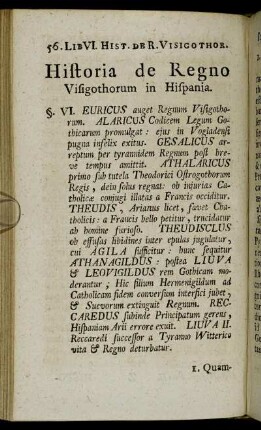 56. LIB VI. HIST. DE R. VISIGOTHOR.
Historia de Regno
Visigothorum in Hispania.
§. VI. EURICUS auget Regnum Visigotho-
rum. ALARICUS Codicem Legum Go-
thicarum promulgat: ejus in Vogladensi
pugna infelix exitus. GESALICUS ar-
reptum per tyrannidem Regnum post bre-
ve tempus amittit. ATHALARICUS
primo sub tutela Theodorici Ostrogothorum
Regis, dein solus regnat: ob injurias Ca-
tholicæ conjugi illatas a Francis occiditur.
THEUDIS, Arianus licet, favet Ca-
tholicis: a Francis bello petitur, trucidatur
ab homine furioso. THEUDISCLUS
ob effusas libidines inter epulas jugulatur,
cui AGILA sufficitur: hunc sequitur
ATHANAGILDUS: postea LIUVA
& LEOVIGILDUS rem Gothicam mo-
derantur; Hic filium Hermenigildum ad
Catholicam fidem conversum interfici jubet,
& Suevorum extinguit Regnum. REC-
CAREDUS subinde Principatum gerens,
Hispaniam Arii errore exuit. LIUVA II.
Reccaredi successor a Tyranno Witterico
vita & Regno deturbatur.
1. Quam-